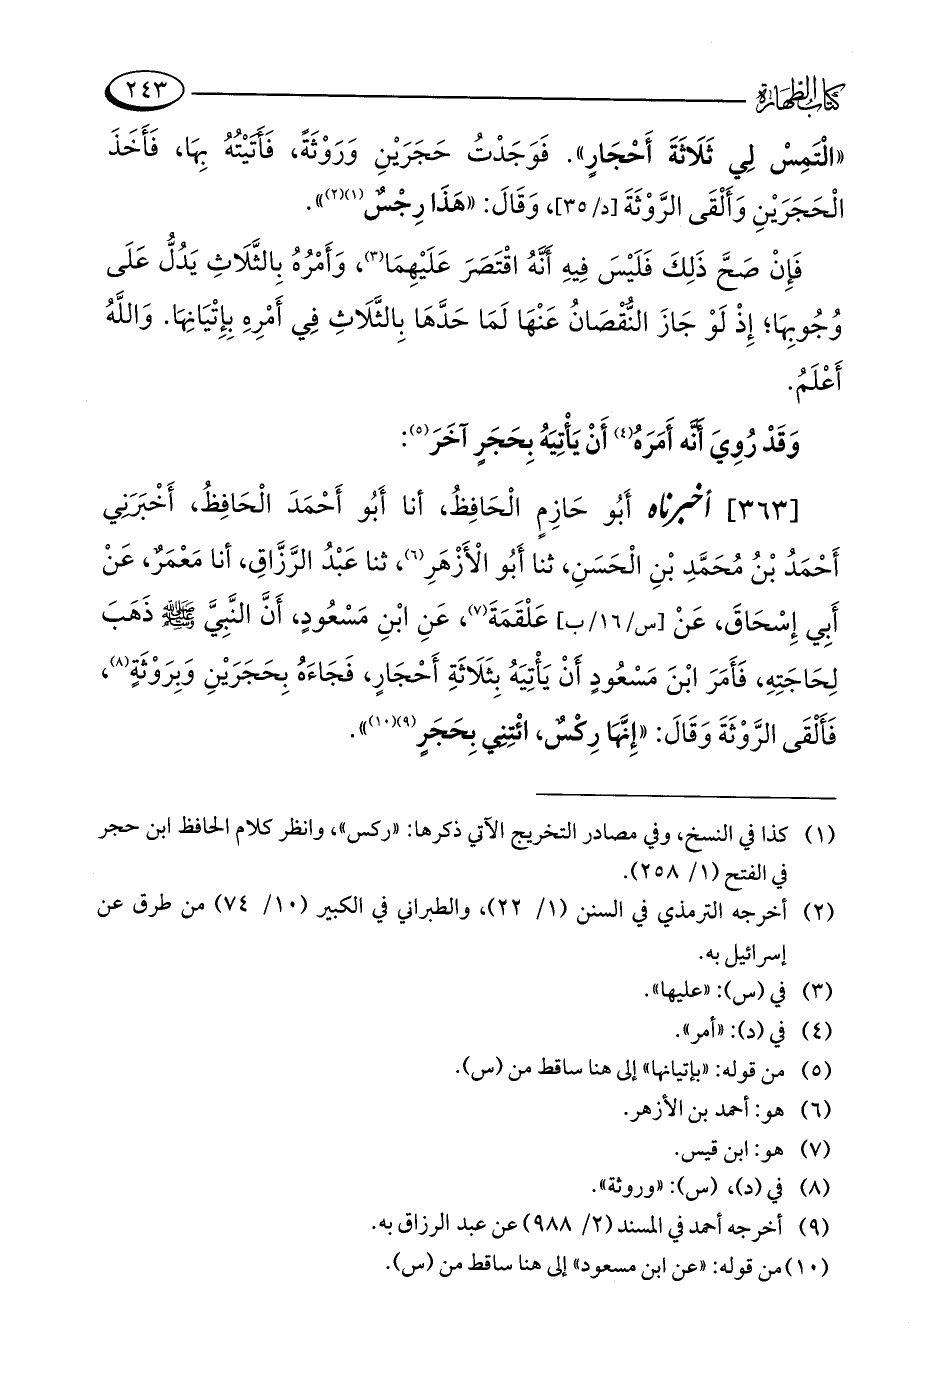 كتاب الطهارة ٢٤٣
«الْتَمِسْ لِي ثَلَاثَةَ أَحْجَارٍ». فَوَجَدْتُ حَجَرَيْنِ وَرَوْثَةً، فَأَتَيْتُهُ بِهَا، فَأَخَذَ
الْحَجَرَيْنِ وَأَلْقَى الرَّوْثَةَ [د/ ٣٥]، وَقَالَ: «هَذَا رِجْسٌ(١)(٢)».
فَإِنْ صَحَّ ذَلِكَ فَلَيْسَ فِيهِ أَنَّهُ اقْتَصَرَ عَلَيْهِمَا(٣)، وَأَمْرُهُ بِالثَّلَاثِ يَدُلُّ عَلَى
وُجُوبِهَا؛ إِذْ لَوْ جَازَ النُّقْصَانُ عَنْهَا لَمَا حَدَّهَا بِالثَّلَاثِ فِي أَمْرِهِ بِإِتْيَانِهَا. وَاللَّهُ
أَعْلَمُ.
وَقَدْ رُوِيَ أَنَّه أَمَرَهُ(٤) أَنْ يَأْتِيَهُ بِحَجَرٍ آخَرَ(٥):
[٣٦٣] أخبرناه أَبُو حَازِمٍ الْحَافِظُ، أنا أَبُو أَحْمَدَ الْحَافِظُ، أَخْبَرَنِي
أَحْمَدُ بْنُ مُحَمَّدِ بْنِ الْحَسَنِ، ثنا أَبُو الْأَزْهَرِ(٦)، ثنا عَبْدُ الرَّزَّاقِ، أنا مَعْمَرٌ، عَنْ
أَبِي إِسْحَاقَ، عَنْ [س/ ١٦/ ب] عَلْقَمَةَ(٧)، عَنِ ابْنِ مَسْعُودٍ، أَنَّ النَّبِيَّ ﷺ ذَهَبَ
لِحَاجَتِهِ، فَأَمَرَ ابْنَ مَسْعُودٍ أَنْ يَأْتِيَهُ بِثَلَاثَةِ أَحْجَارٍ، فَجَاءَهُ بِحَجَرَيْنِ وَبِرَوْثَةٍ(٨)،
فَأَلْقَى الرَّوْثَةَ وَقَالَ: «إِنَّهَا رِكْسٌ، ائْتِنِي بِحَجَرٍ(٩)(١٠)».
(١) كذا في النسخ، وفي مصادر التخريج الآتي ذكرها: «ركس»، وانظر كلام الحافظ ابن حجر
في الفتح (١/ ٢٥٨).
(٢) أخرجه الترمذي في السنن (١/ ٢٢)، والطبراني في الكبير (١٠/ ٧٤) من طرق عن
إسرائيل به.
(٣) في (س): «عليها».
(٤) في (د): «أمر».
(٥) من قوله: «بإتيانها» إلى هنا ساقط من (س).
(٦) هو: أحمد بن الأزهر.
(٧) هو: ابن قيس.
(٨) في (د)، (س): «وروثة».
(٩) أخرجه أحمد في المسند (٢/ ٩٨٨) عن عبد الرزاق به.
(١٠) من قوله: «عن ابن مسعود» إلى هنا ساقط من (س).